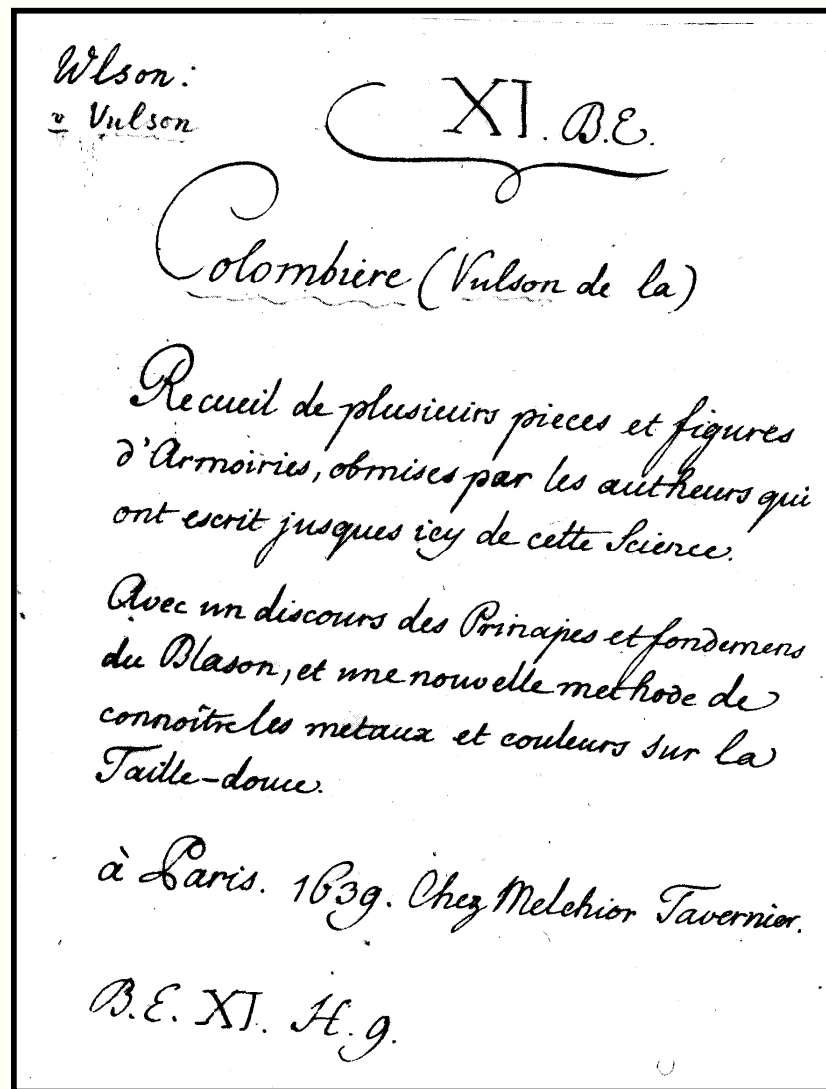 Wlson:
v Vulson
XI. B.E.
Colombiere (Vulson de la)
Recueil de plusieurs pieces et figures
d'Armoiries, obmises par les autheurs qui
ont escrit jusques icy de cette Science.
Avec un discours des Principes et fondemens
du Blason, et une nouvelle methode de
connoître les metaux et couleurs sur la
Taille-douce.
à Paris. 1639. Chez Melchior Tavernier.
B.E. XI. H. 9.